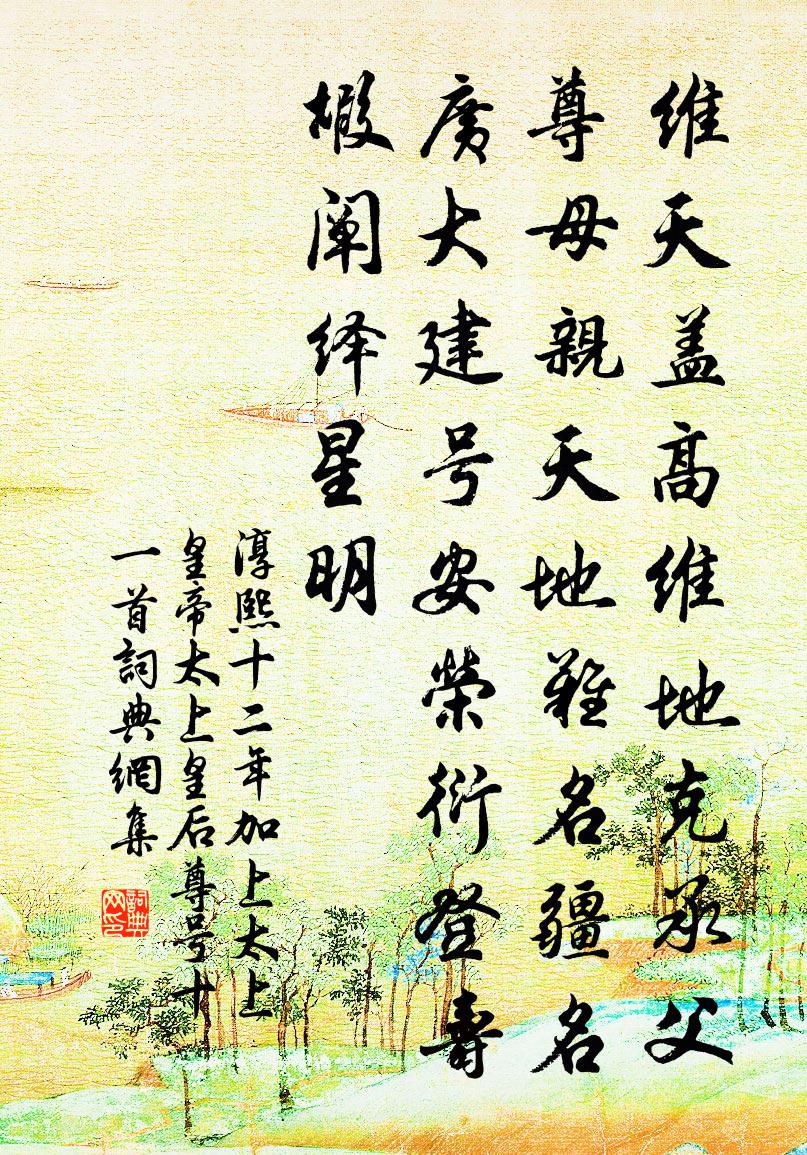 维天盖高维地克承父
尊母親天地難名疆名
廣大建号安榮衍登壽
嘏阐绎星明
淳熙十二年加上太上
皇帝太上皇后尊号十
一首詞典網集
詞典
网印